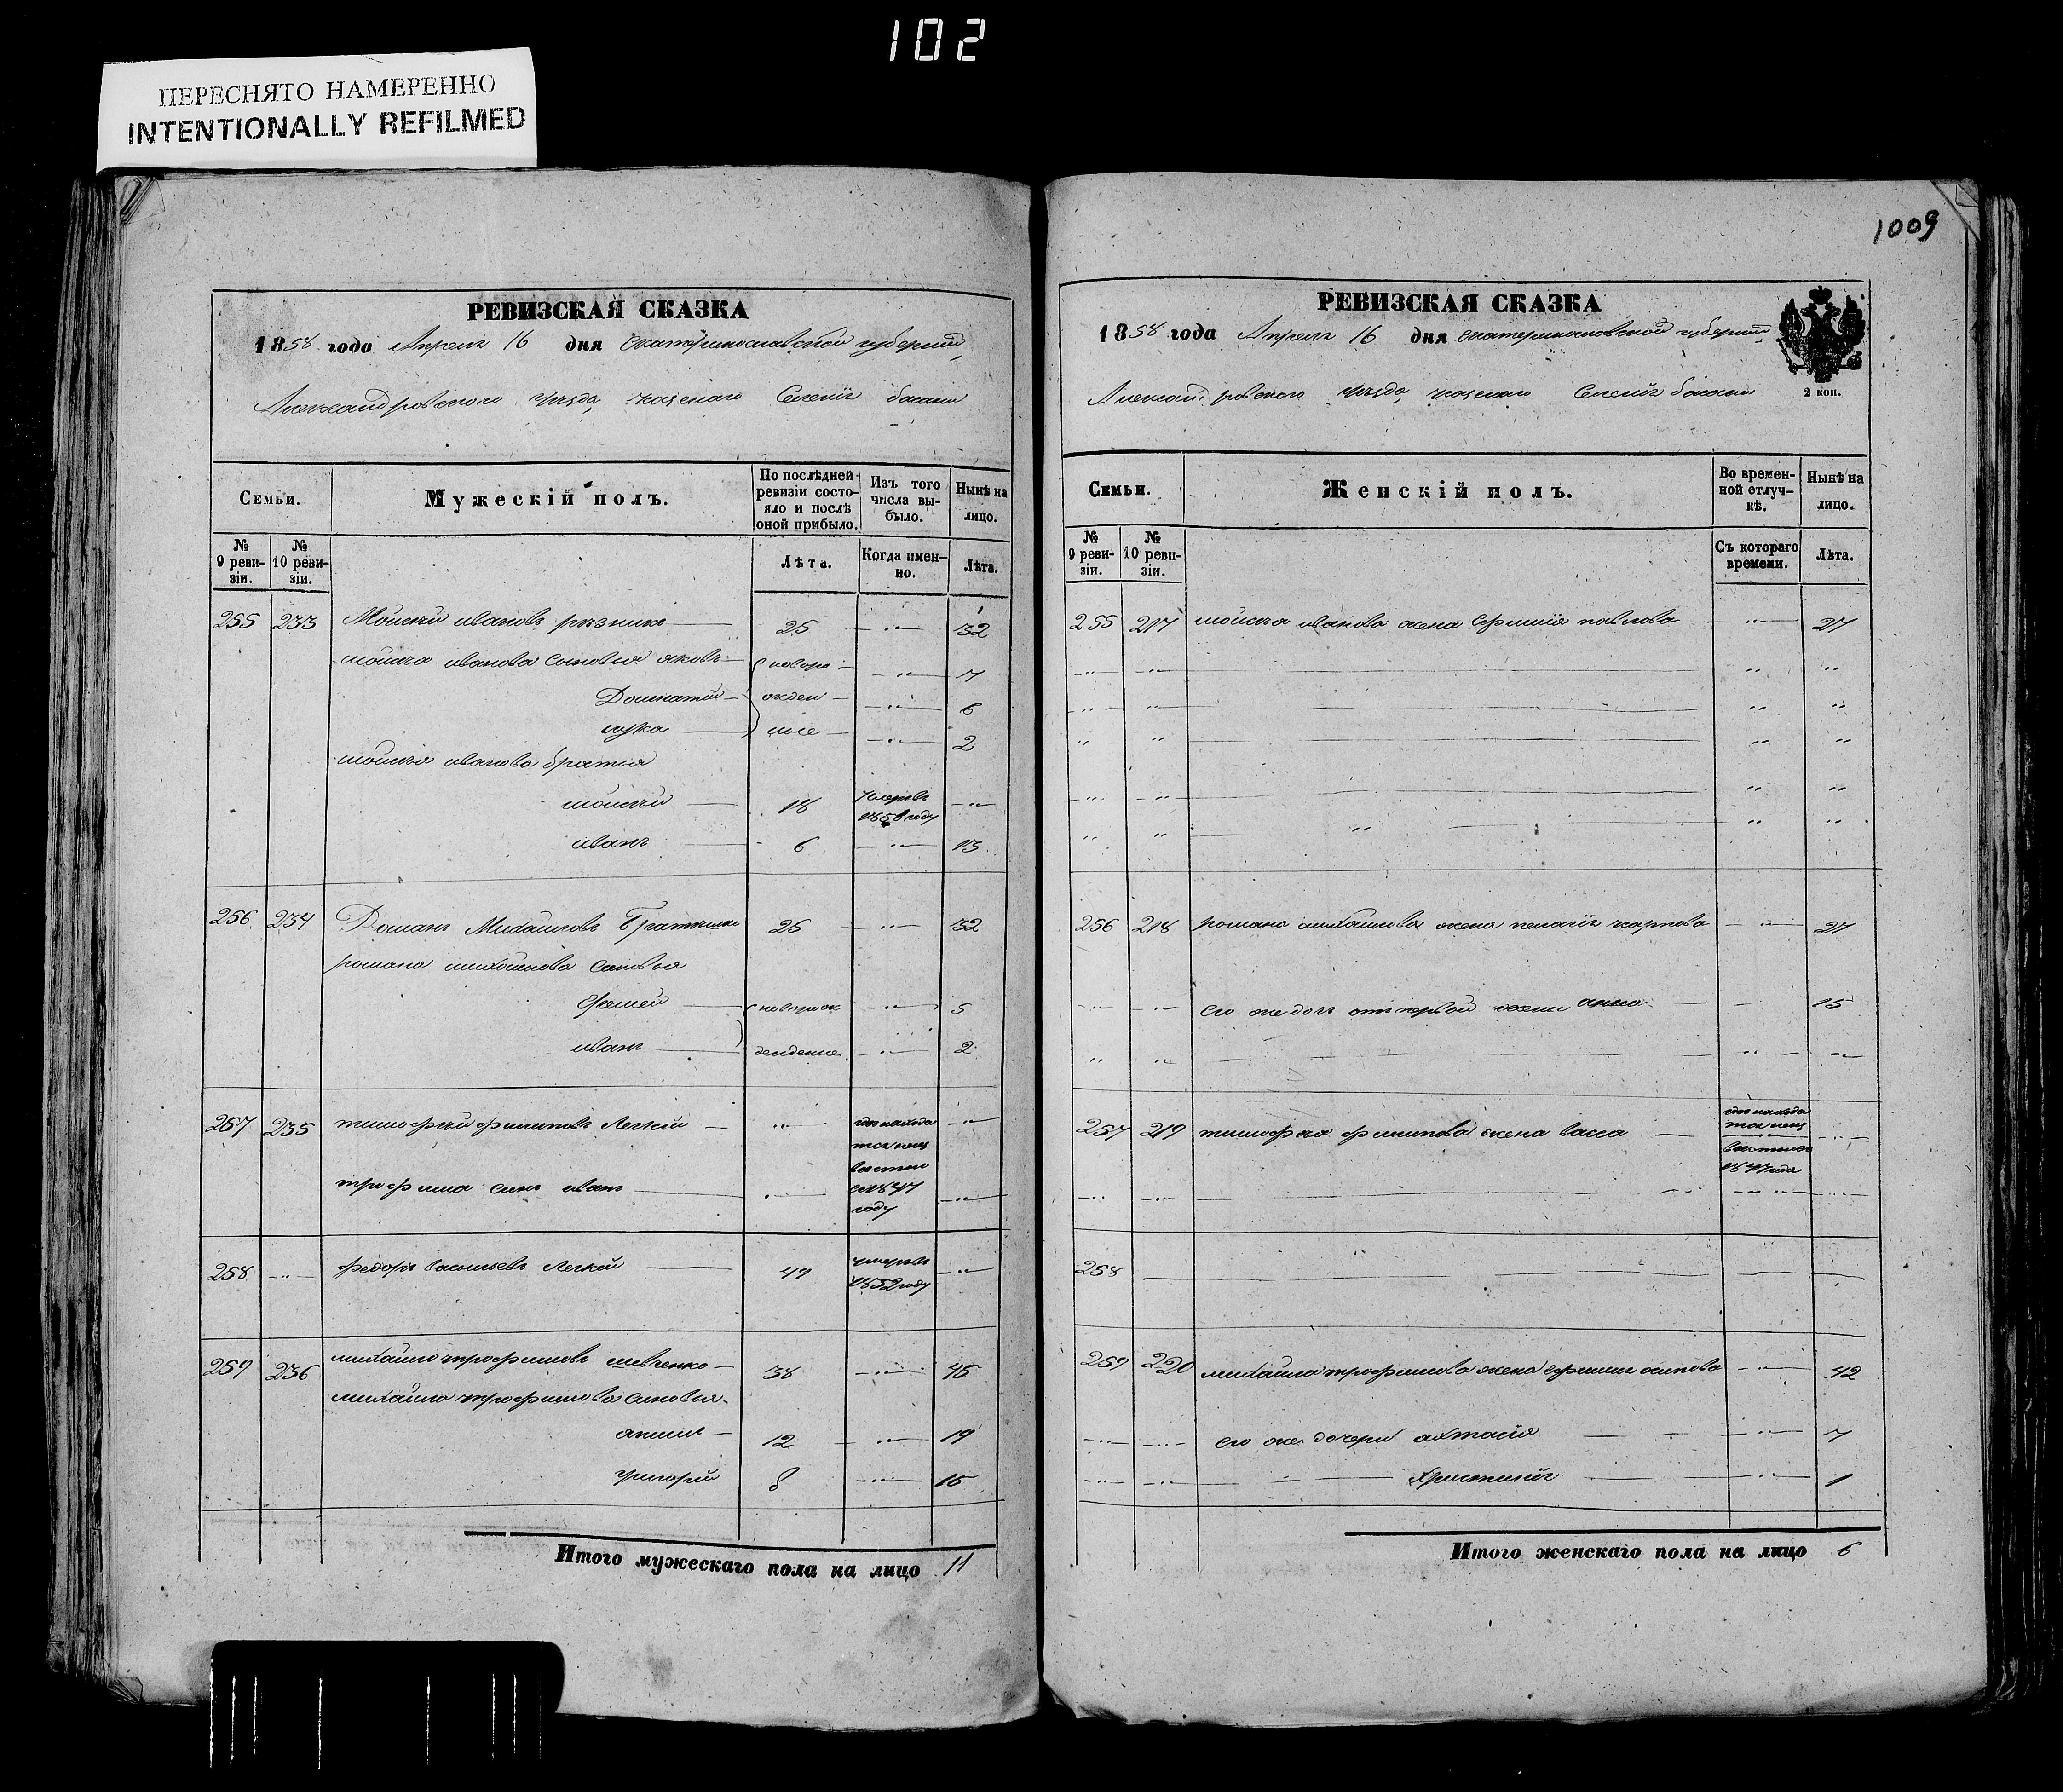 102
ПЕРЕСНЯТО НАМЕРЕННО
INTENTIONALLY REFILMED
РЕВИЗСКАЯ СКАЗКА
1858 года Апреля 16 дня Екатеринославской губернии,
Александровскаго уезда, Селенія басани
Семьи.
Мужескій полъ.
По послѣдней ревизіи состояло и послѣ оной прибыло.
Изъ того числа выбыло.
Нынѣ на лицо.
№ 9 ревизіи.
№ 10 ревизіи.
Лѣта.
Когда именно.
Лѣта.
255 233 Моисей ивановъ резникъ 25 32
моисея иванова сыновья яковъ новоро 7
жден 6
лука ные 2
моисея иванова братья
моисей 18 умеръ въ 1858 году
иванъ 6 13
256 234 Романъ Михайловъ 25 32
романа михайлова сыновья
новорож 5
иванъ денные 2
257 235 тимофей филиповъ Легкій
сынъ иванъ 1847 году
258 федоръ васильевъ Легкій 49 умеръ въ 1852 году
259 236 михайло трофимовъ шевченко 38 45
михайла трофимова сыновья
акимъ 12 19
григорій 8 15
Итого мужескаго пола на лицо 11
1009
РЕВИЗСКАЯ СКАЗКА
1858 года Апреля 16 дня екатеринославской губерніи,
Александровскаго уезда, Селенія басани
2 коп.
Семьи.
Женскій полъ.
Во временной отлучкѣ.
Нынѣ на лицо.
№ 9 ревизіи.
№ 10 ревизіи.
Съ котораго времени.
Лѣта.
255 217 моисея иванова жена павлова 27
256 218 романа михайлова жена пелагія карпова 27
его же дочь отъ первой жены анна 15
257 219 тимофея филипова жена васса 1847 года
258
259 220 михайла трофимова жена осипова 42
его же дочери 7
христинія 1
Итого женскаго пола на лицо 6